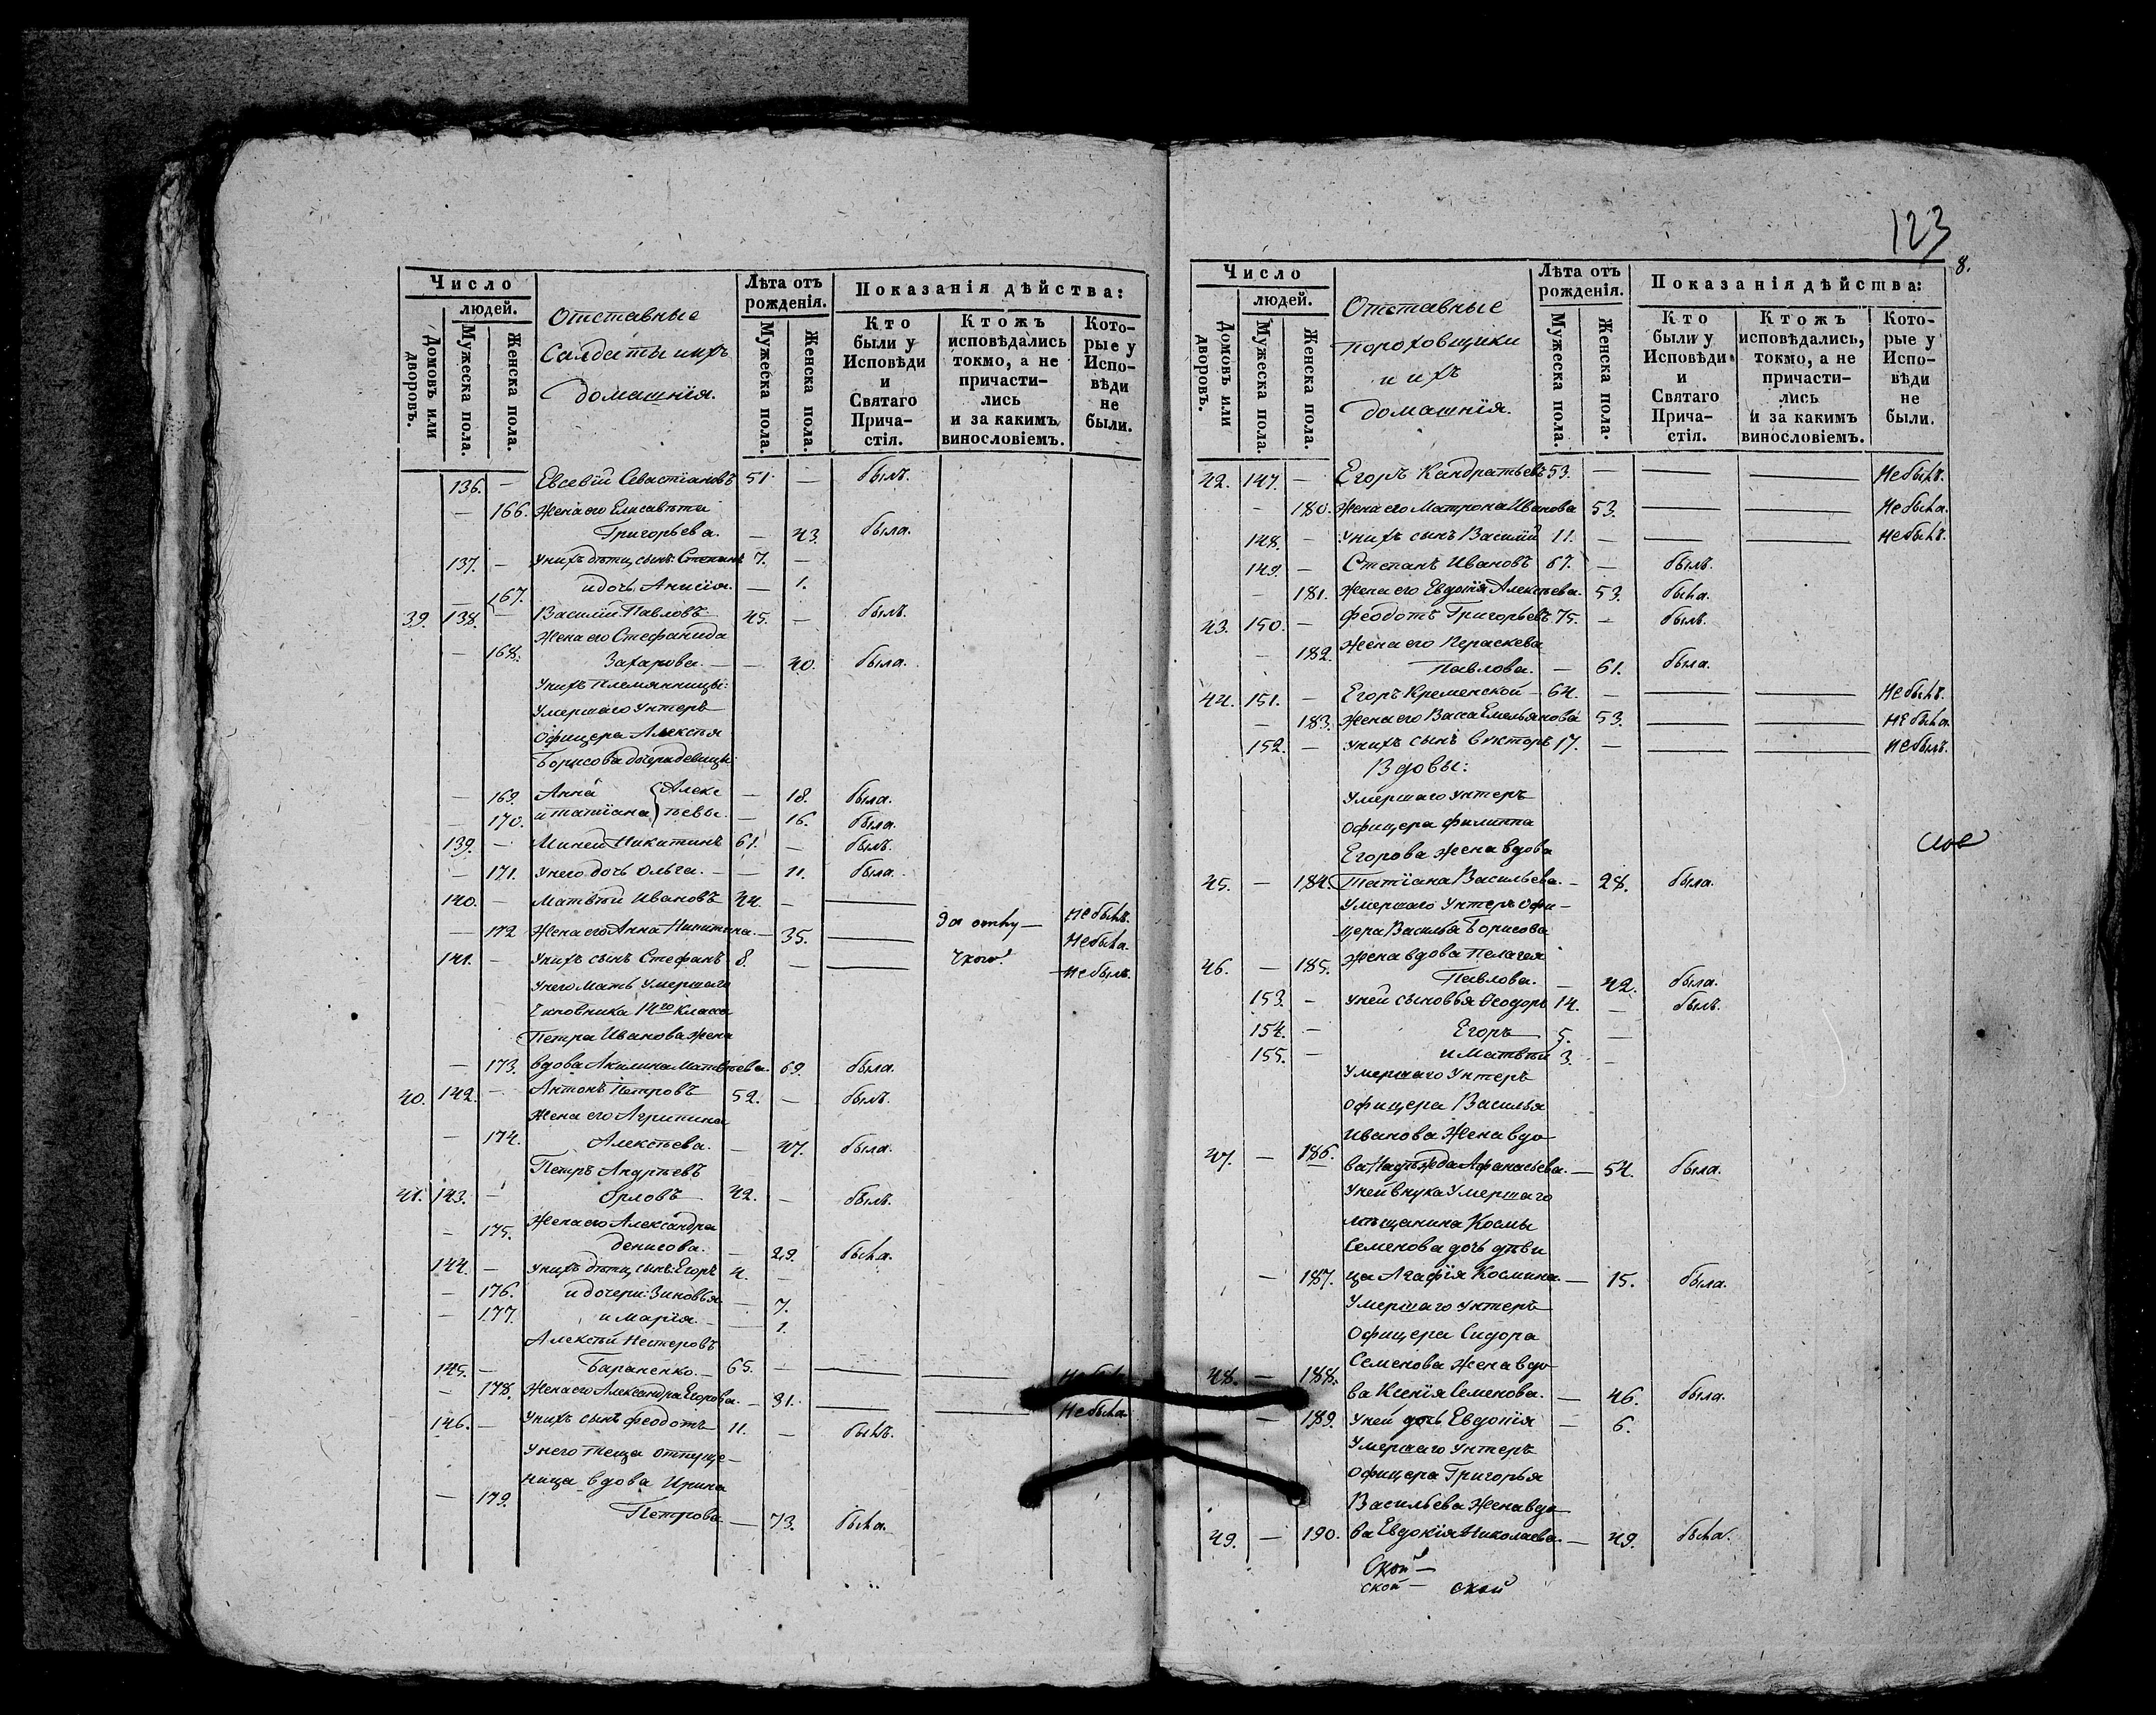 Число
людей.
Домовъ или дворовъ.
Мужеска пола.
Женска пола.
Отставные
Салдаты ихъ
домашнія.
Лѣта отъ рожденія.
Мужеска пола.
Женска пола.
Показанія дѣйства:
Кто были у Исповѣди и Святаго Прича-стія.
Ктожъ исповѣдались токмо, а не причасти-лись и за какимъ винословіемъ.
Кото-рые у Испо-вѣди не были.
136. — Евсевій Севастіановъ 51. — былъ.
— 166. Жена его Елисавета
Григорьева. — 43. была.
137. — У нихъ дѣти, сынъ: Степанъ 7. —
167. и дочь Анисія. — 1.
39. 138. — Василій Павловъ 45. — былъ.
Жена его Стефанида
— 168. Захарова. — 40. была.
У нихъ племянницы:
Умершаго Унтеръ
Офицера Алексѣя
Борисова дочери девицы:
— 169. Анна { Алекс — 18. была.
— 170. и Татіана } ѣевы. — 16. была.
139. — Миней Никитинъ 61. — былъ.
— 171. У него дочь Ольга. — 11. была.
140. — Матвѣй Ивановъ 44. — — За отлу— Небылъ.
— 172 Жена его Анна Никитина. — 35. — Небыла.
141. — У нихъ сынъ Стефанъ 8. — — чкою. Небылъ.
У него мать умершаго
Чиновника 14го класса
Петра Иванова жена
— 173. вдова Акилина Матвѣева. 69. была.
40. 142. — Антонъ Петровъ 52. — былъ.
Жена его Агрипина
— 174. Алексѣева. — 47. была.
Петръ Андрѣевъ
41. 143. — Орловъ 42. — былъ.
Жена его Александра
— 175. Денисова. — 29. была.
144. — У нихъ дѣти, сынъ: Егоръ 4. —
— 176. и дочери: Зиновья — 7.
— 177. и Марія. — 1.
Алексѣй Нестеровъ
145. — Бараненко. — 65. — — —
— 178. Жена его Александра Егорова. — 31. — — Небыла
146. — У нихъ сынъ Феодотъ 11. — былъ.
У него теща отпуще—
ница вдова Ирина
— 179. Петрова — 73. была.
123
8.
Число
людей.
Домовъ или дворовъ.
Мужеска пола.
Женска пола.
Отставные
Пороховщики
и ихъ
домашнія.
Лѣта отъ рожденія.
Мужеска пола.
Женска пола.
Показанія дѣйства:
Кто были у Исповѣди и Святаго Прича-стія.
Ктожъ исповѣдались, токмо, а не причасти-лись и за какимъ винословіемъ.
Кото-рые у Испо-вѣди не были.
42. 147. — Егоръ Кандратьевъ 53. — — — Небылъ.
— 180. Жена его Матрона Иванова 53. — — Небыла.
148. — У нихъ сынъ Василій 11. — — — Небылъ.
149. — Степанъ Ивановъ 67. — былъ.
— 181. Жена его Евдокія Алексѣева. 53. была.
43. 150. — Феодотъ Григорьевъ 75. — былъ.
— 182. Жена его Параскева
Павлова. — 61. была.
44. 151. — Егоръ Кременской — 64. — — — Небылъ.
— 183. Жена его Васса Емельянова 53. — — Небыла.
152. — У нихъ сынъ Викторъ 17. — — — Небылъ.
Вдовы:
Умершаго Унтеръ
Офицера Филиппа
Егорова жена вдова
45. — 184. Татіана Васильева. — 28. была.
Умершаго Унтеръ Офи—
цера Василья Борисова
46. — 185. жена вдова Пелагея
Павлова. — 42. была.
153. — У ней сыновья Феодоръ 14. — былъ.
154. — Егоръ 5. —
155. — и Матвѣй 3. —
Умершаго Унтеръ
Офицера Василья
Иванова жена вдо—
47. — 186. ва Надѣжда Афанасьева. — 54. была.
У ней внука умершаго
мѣщанина Космы
Семенова дочь дѣви
— 187. ца Агафія Космина — 15. была.
Умершаго Унтеръ
Офицера Сидора
Семенова жена вдо—
48. — 188. ва Ксенія Семенова. — 46. была.
— 189. У ней дочь Евдокія — 6.
Умершаго Унтеръ
Офицера Григорья
Васильева жена вдо—
49. — 190. ва Евдокія Николаева. — 49. была.
Ской —
ской — ской